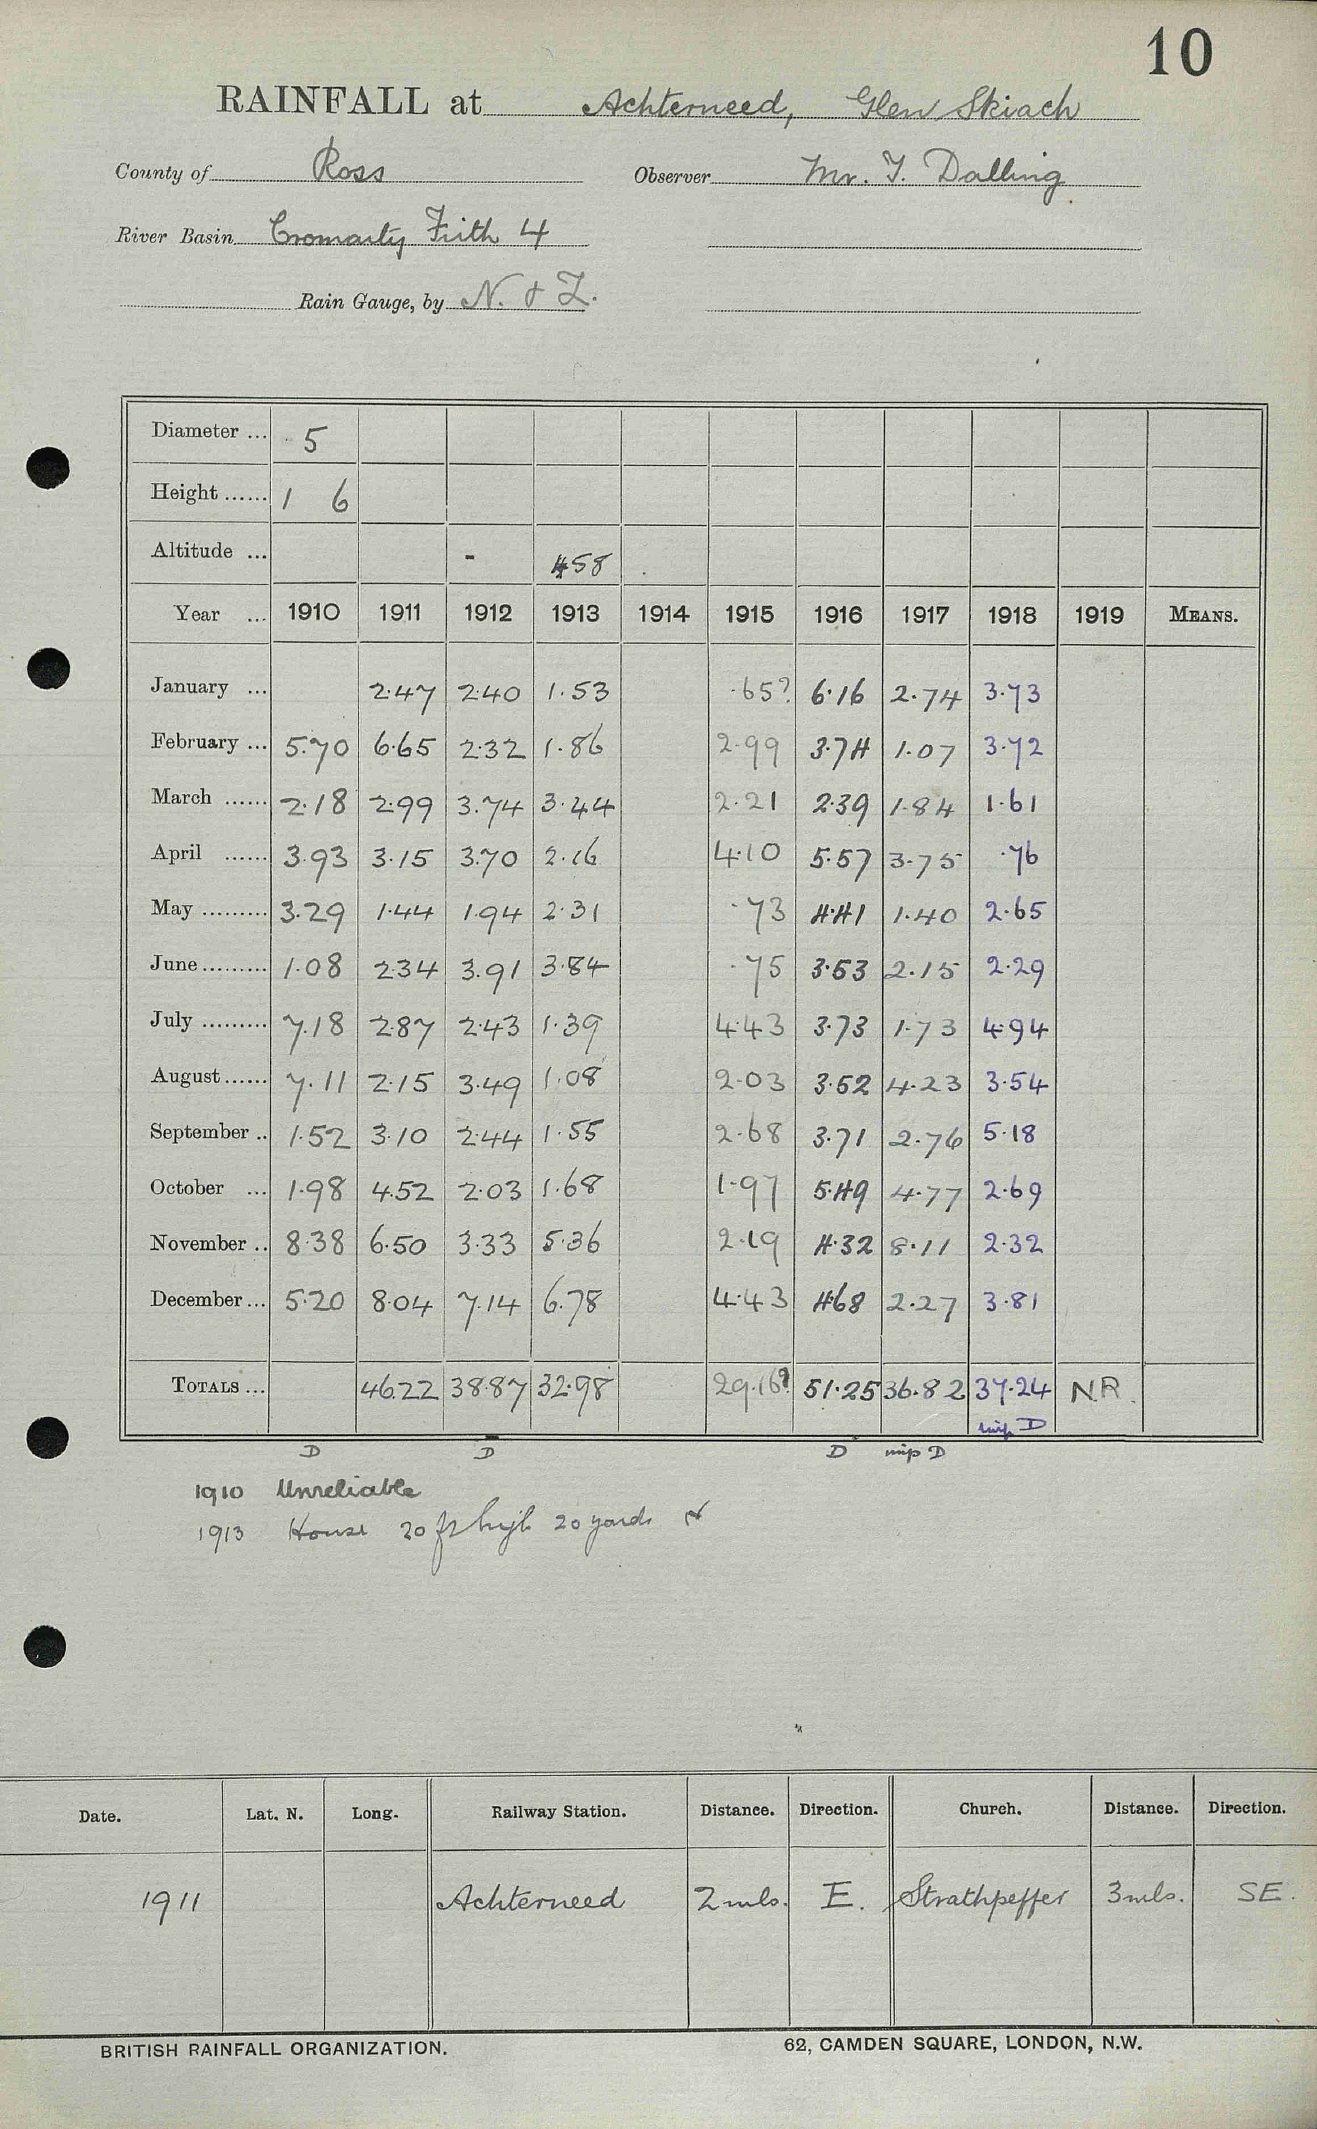 10
RAINFALL at Achterneed, Glen Skiach
County of Ross Observer Mr. T. Dalling
River Basin Cromarty Firth 4
Rain Gauge, by N. & Z.
Diameter ... 5
Height ...... 1 6
Altitude ... - 458
Year ... 1910 1911 1912 1913 1914 1915 1916 1917 1918 1919 MEANS.
January ... 2.47 2.40 1.53 .65? 6.16 2.74 3.73
February ... 5.70 6.65 2.32 1.86 2.99 3.74 1.07 3.72
March ...... 2.18 2.99 3.74 3.44 2.21 2.39 1.84 1.61
April ...... 3.93 3.15 3.70 2.16 4.10 5.57 3.75 .76
May ......... 3.29 1.44 1.94 2.31 .73 4.41 1.40 2.65
June ......... 1.08 2.34 3.91 3.84 .75 3.53 2.15 2.29
July ......... 7.18 2.87 2.43 1.39 4.43 3.73 1.73 4.94
August ...... 7.11 2.15 3.49 1.08 2.03 3.52 4.23 3.54
September .. 1.52 3.10 2.44 1.55 2.68 3.71 2.76 5.18
October ... 1.98 4.52 2.03 1.68 1.97 5.49 4.77 2.69
November .. 8.38 6.50 3.33 5.36 2.19 4.32 8.11 2.32
December ... 5.20 8.04 7.14 6.78 4.43 4.68 2.27 3.81
TOTALS ... 46.22 38.87 32.98 29.16? 51.25 36.82 37.24 N.R.
D
D D D D
1910 Unreliable
1913 House 20 ft high 20 yards N
Date. Lat. N. Long. Railway Station. Distance. Direction. Church. Distance. Direction.
1911 Achterneed 2 mls. E. Strathpeffer 3 mls. SE.
BRITISH RAINFALL ORGANIZATION. 62, CAMDEN SQUARE, LONDON, N.W.